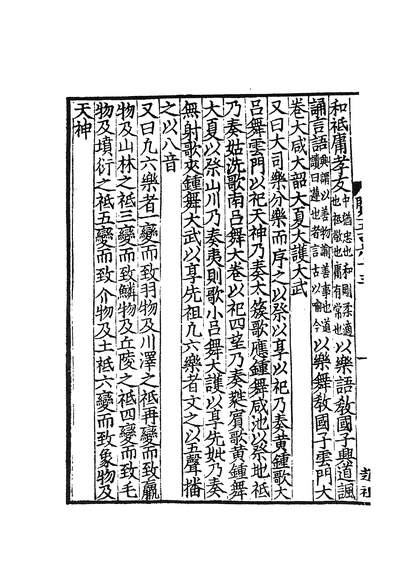 和祗庸孝友中猶忠也和剛柔適也祗敬也庸有常也以樂語敎國子興道諷
誦言語興謂以善物諭善事也道讀曰導也者言古以喻今以樂舞敎國子雲門大
卷大咸大韶大夏大護大武
又曰大司樂分樂而序之以祭以享以祀乃奏黃鍾歌大
吕舞雲門以祀天神乃奏太簇歌應鍾舞咸池以祭地祗
乃奏姑洗歌南吕舞大卷以祀四望乃奏蕤賔歌黃鍾舞
大夏以祭山川乃奏夷則歌小吕舞大護以享先妣乃奏
無射歌夾鍾舞大武以享先祖凡六樂者文之以五聲播
之以八音
又曰凡六樂者一變而致羽物及川澤之祗再變而致臝
物及山林之祗三變而致鱗物及丘陵之祗四變而致毛
物及墳衍之祗五變而致介物及土祗六變而致象物及
天神